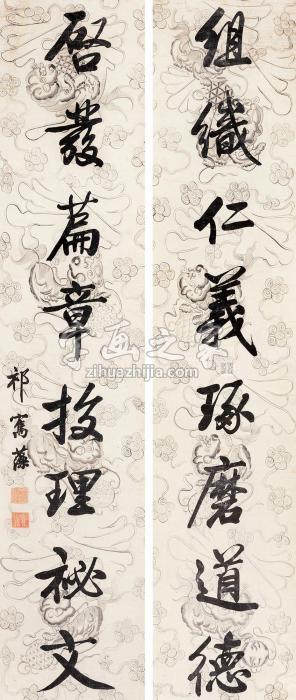 組織仁義琢磨道德
啓發篇章挍理祕文
祁寯藻
字画之家
zihuazhijia.com